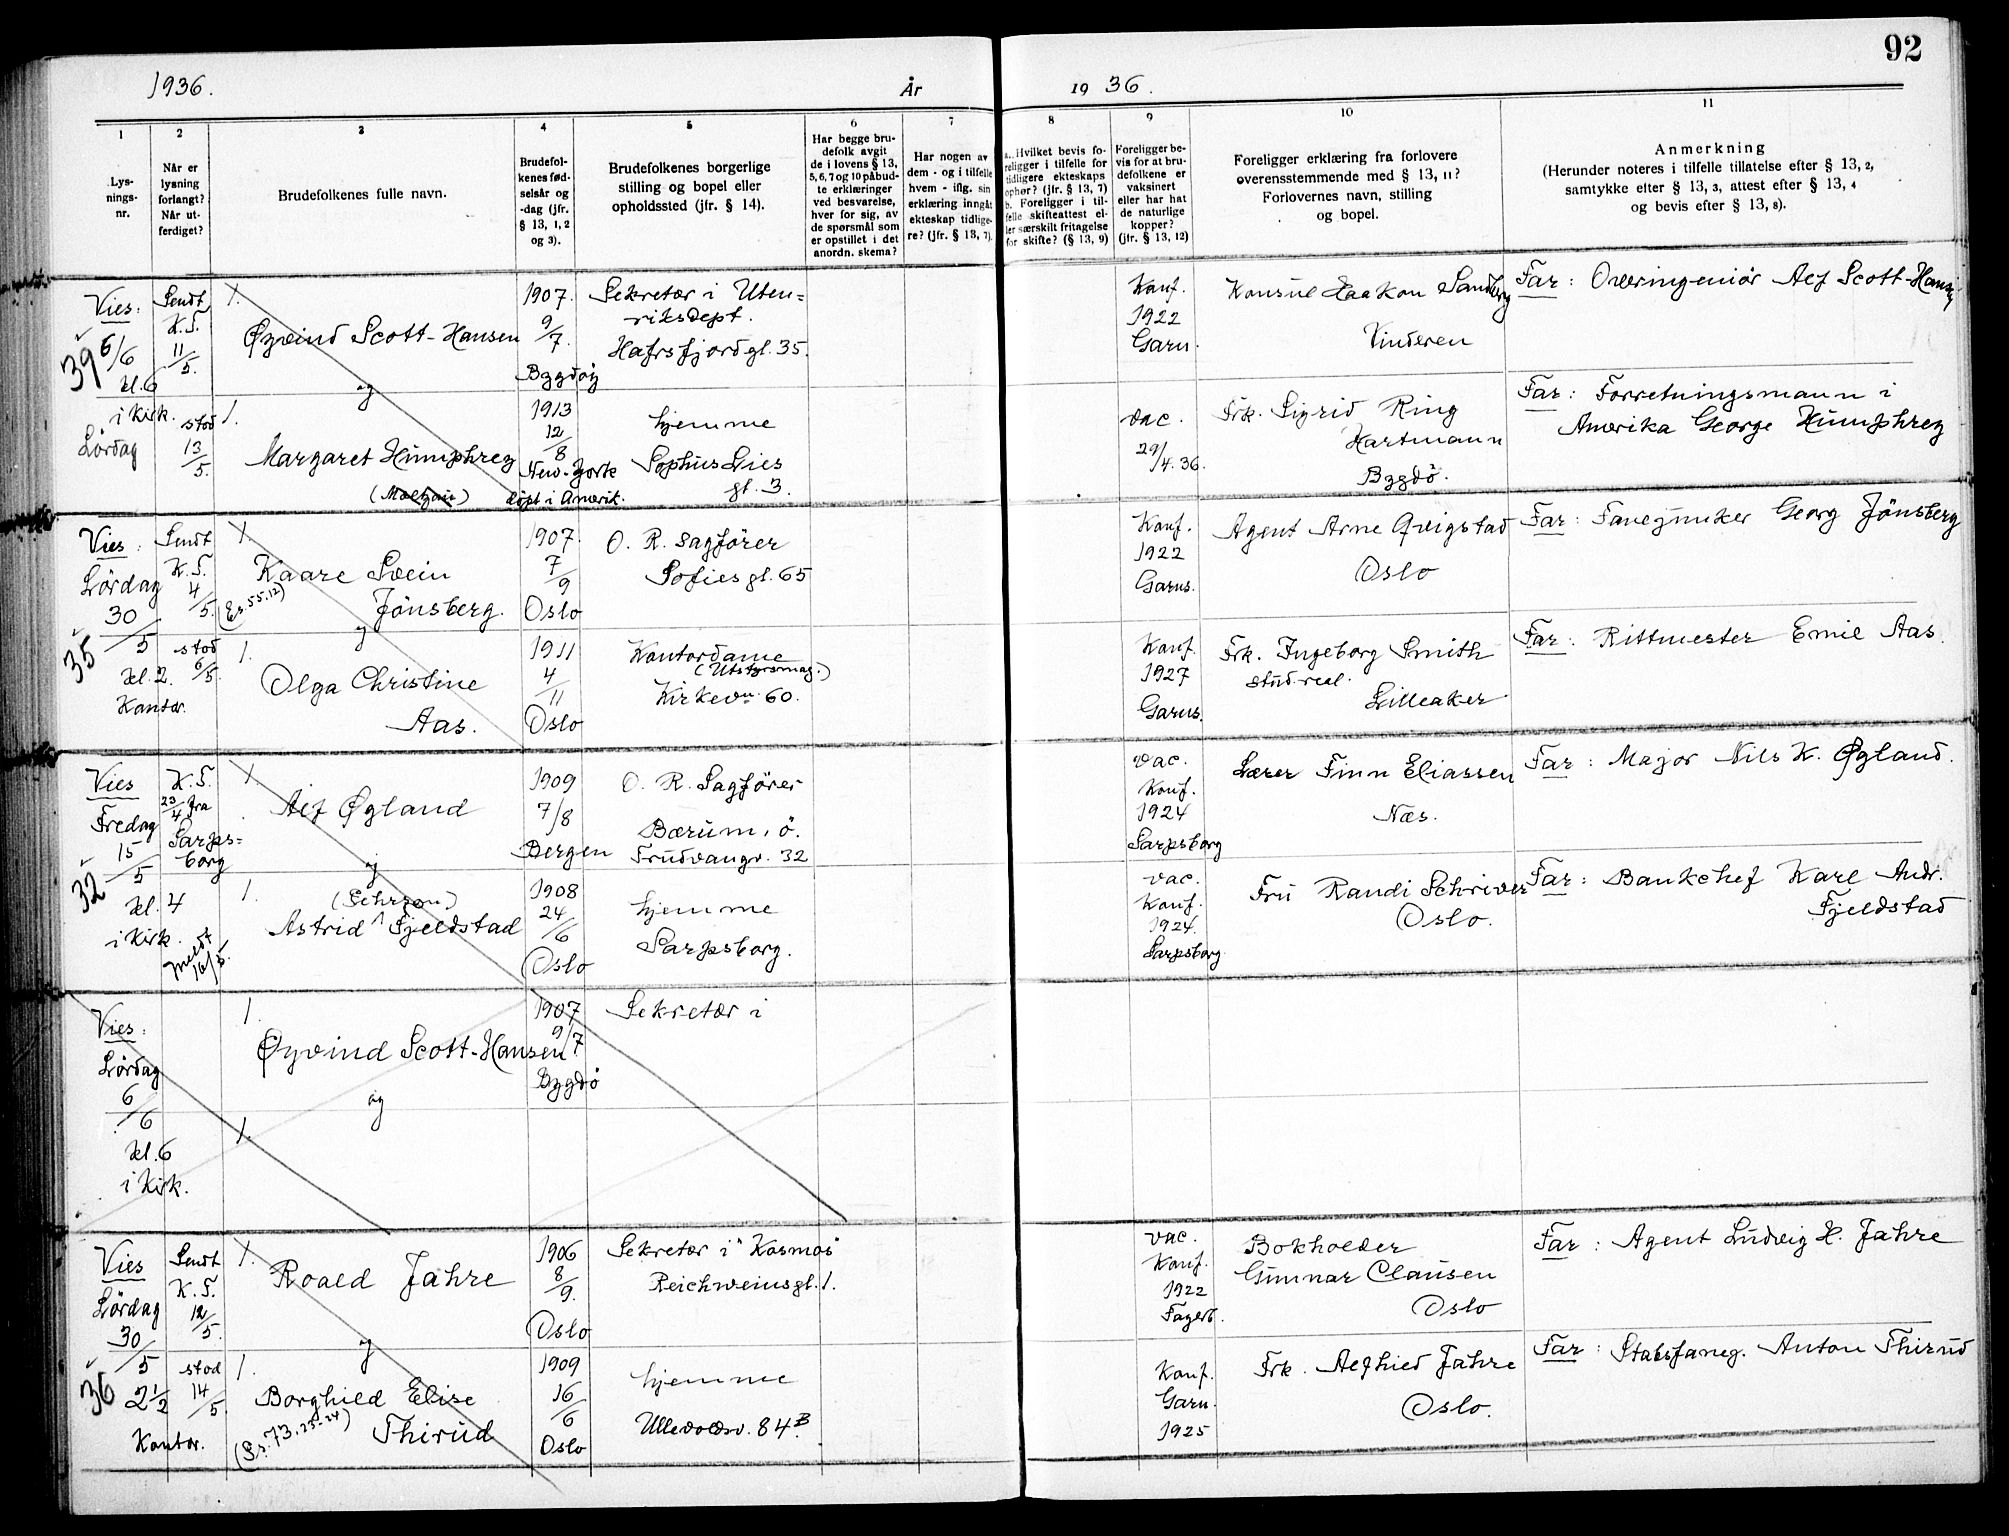 92
1936.
År
19 36.
1
2
3
4
5
6
7
8
9
10
11
Lys-
nings-
nr.
Når er
lysning
forlangt?
Når ut-
ferdiget?
Brudefolkenes fulle navn.
Brudefol-
kenes fød-
selsår og
-dag (jfr.
§ 13, 1, 2
og 3).
Brudefolkenes borgerlige
stilling og bopel eller
opholdssted (jfr. § 14).
Har begge bru-
defolk avgit
de i lovens § 13,
5, 6, 7 og 10 påbud-
te erklæringer
ved besvarelse,
hver for sig, av
de spørsmål som
er opstillet i det
anordn. skema?
Har nogen av
dem - og i tilfelle
hvem - iflg. sin
erklæring inngått
ekteskap tidlige-
re? (jfr. § 13, 7).
a. Hvilket bevis fo-
religger i tilfelle for
tidligere ekteskaps
ophør? (jfr. § 13, 7)
b. Foreligger i til-
felle skifteattest el-
ler særskilt fritagelse
for skifte? (§ 13, 9)
Foreligger be-
vis for at bru-
defolkene er
vaksinert
eller har hat
de naturlige
kopper?
(jfr. § 13, 12)
Foreligger erklæring fra forlovere
overensstemmende med § 13, 11?
Forlovernes navn, stilling
og bopel.
Anmerkning
(Herunder noteres i tilfelle tillatelse efter § 13, 2,
samtykke efter § 13, 3, attest efter § 13, 4
og bevis efter § 13, 8).
39
Vies:
6/6
kl. 6
i Kirk.
Lördag
Sendt
K.T.
11/5.
stod
13/5.
1.
Øyvind Scott-Hansen
og
1.
Margaret Humphrey
1907.
9/7.
Bygdøy
1913
12/8
New-York
döpt i Amerik.
Sekretær i Uten=
riksdept.
Hafrsfjordgt. 35.
hjemme
Sophus Lies
gt. 3.
Konf.
1922
Garn.
vac.
29/4.36.
Konsul Haakon Sandberg
Vinderen
Frk. Sigrid Ring
Hartmann
Bygdö.
Far: Overingeniör Alf Scott-Hansen
Far: Forretningsmann i
Amerika George Humphrey
35
Vies:
Lördag
30/5
kl. 2.
Kontor.
Sendt
K.T.
4/5.
stod
6/5.
1.
Kaare Svein
Jönsberg.
og
1.
Olga Christine
Aas.
1907.
7/9
Oslo
1911
4/11
Oslo
O. R. sagförer
Sofies gt. 65
Kontordame
(Utstyrsmag.)
Kirkevn. 60.
Konf.
1922
Garns.
Konf.
1927
Garns.
Agent Arne Qvigstad
Oslo
Frk. Ingeborg Smith
stud real.
Lilleaker
Far: Fanejunker Georg Jönsberg
Far: Rittmester Emil Aas.
32
Vies
Fredag
15/5
kl. 4
i Kirk.
K.T.
23/4 fra
Sarps=
borg
Meldt
16/5.
1.
Alf Øgland
og
1.
Astrid Fjeldstad
1909
7/8
Bergen
1908
24/6
Oslo
O. R. Sagförer
Bærum, ö.
Frudvangv. 32
hjemme
Sarpsborg.
vac.
Konf.
1924
Sarpsborg
vac.
Konf.
1924.
Sarpsborg
Lærer Finn Eliassen
Næs.
Fru Randi Schriver
Oslo.
Far: Major Nils K. Øgland.
Far: Bankchef Karl Andr.
Fjeldstad
Vies:
Lördag
6/6
kl. 6
i Kirk.
1.
Øyvind Scott-Hansen
og
1.
1907
9/7
Bygdö
Sekretær i
36
Vies
Lördag
30/5
2 1/2
Kontor.
Sendt
K.T.
12/5.
stod
14/5.
1.
Roald Jahre
og
1.
Borghild Elise
Thirud
1906
8/9.
Oslo
1909
16/6
Oslo
Sekretær i "Kosmos"
Reichweinsgt. 1.
hjemme
Ullevoldsv. 84 B.
vac.
Konf.
1922
Fagerb.
Konf.
Garn.
1925
Bokholder
Gunnar Clausen
Oslo
Frk. Alfhild Jahre
Oslo.
Far: Agent Ludvig H. Jahre
Far: Stabsfanej. Anton Thirud